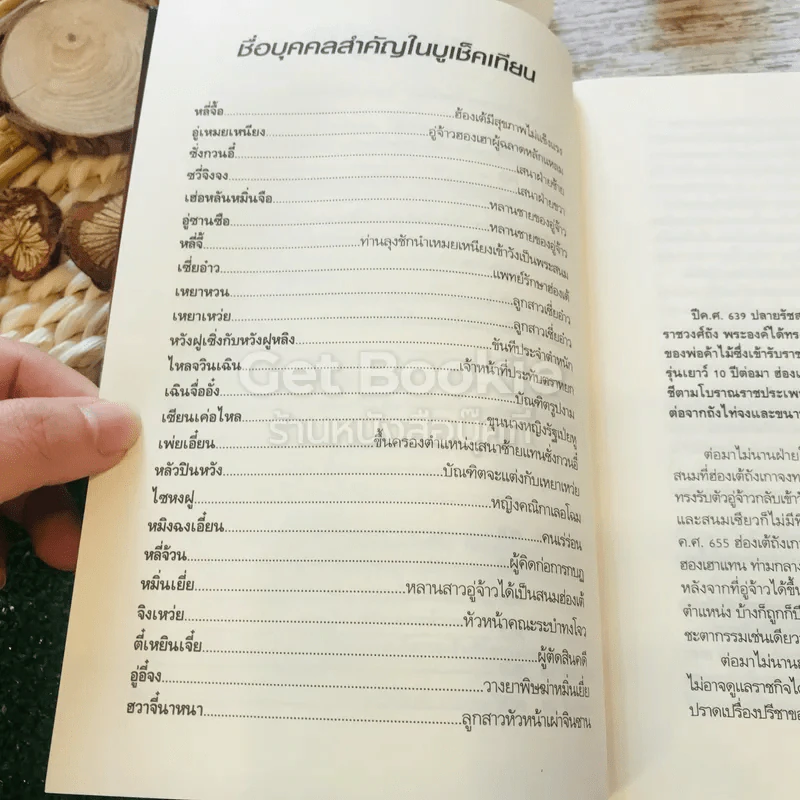 ชื่อบุคคลสำคัญในบูเช็คเทียน
หลี่จื้อ....ฮ้องเต้มีสุขภาพไม่แข็งแรง
อู่เหมยเหนียง....อู่จ้าวฮองเฮาผู้ฉลาดหลักแหลม
ซั่งกวนอี๋....เสนาฝ่ายซ้าย
ชวี่จิงจง....เสนาฝ่ายขวา
เฮ่อหลันหมิ่นจือ....หลานชายของอู่จ้าว
อู่ซานซือ....หลานชายของอู่จ้าว
หลี่จี้....ท่านลุงชักนำเหมยเหนียงเข้าวังเป็นพระสนม
เซี่ยอ๋าว....แพทย์รักษาฮ่องเต้
เหยาหวน....ลูกสาวเซี่ยอ๋าว
เหยาเหว่ย....ลูกสาวเซี่ยอ๋าว
หวังฝูเซิ่งกับหวังฝูหลิง....ขันทีประจำตำหนัก
ไหลจวินเฉิน....เจ้าหน้าที่ประทับตราหยก
เฉินจื่ออั๋ง....บัณฑิตรูปงาม
เซียนเค่อไหล....ขุนนางหญิงรัฐเปยหู
เพ่ยเอี๋ยน....ขึ้นครองตำแหน่งเสนาซ้ายแทนซั่งกวนอี๋
หลัวปินหวัง....บัณฑิตจะแต่งกับเหยาเหว่ย
ไซหงฝู....หญิงคณิกาเลอโฉม
หมิงฉงเอี๋ยน....คนเร่ร่อน
หลี่จ้วน....ผู้คิดก่อการกบฏ
หมิ่นเยี่ย....หลานสาวอู่จ้าวได้เป็นสนมฮ่องเต้
จิงเหว่ย....หัวหน้าคณะระบำทงโจว
ตี๋เหยินเจี๋ย....ผู้ตัดสินคดี
อู่อี๋จง....วางยาพิษฆ่าหมิ่นเยี่ย
ฮวาจี๋นาหนา....ลูกสาวหัวหน้าเผ่าจินซาน
Get Bookie
ร้านหนังสือบุ๊คกี้
ปีค.ศ. 639 ปลายรัชส
ราชวงศ์ถัง พระองค์ได้ทร
ของพ่อค้าไม้ซึ่งเข้ารับรา
รุ่นเยาว์ 10 ปีต่อมา ฮ่อง
ชีตามโบราณราชประเพ
ต่อจากถังไท่จงและขนา
ต่อมาไม่นานฝ่ายใ
สนมที่ฮ่องเต้ถังเกาจงท
ทรงรับตัวอู่จ้าวกลับเข้าวั
และสนมเซียวก็ไม่มีที
ค.ศ. 655 ฮ่องเต้ถังเกา
ฮองเฮาแทน ท่ามกลาง
หลังจากที่อู่จ้าวได้ขึ้น
ตำแหน่ง บ้างก็ถูกก็ป็
ชะตากรรมเช่นเดียว
ต่อมาไม่นานม
ไม่อาจดูแลราชกิจได้
ปราดเปรื่องปรีชาขอ